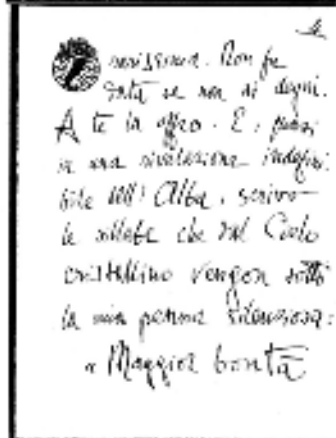 Non fu
se non si degni.
A te la offro. E, quasi
in una rivelazione indefini.
bile dell' Alba, scrivo
le sillabe che dal Cielo
cristallino vengon sotto
la mia penna silenziosa:
" Maggior bontà